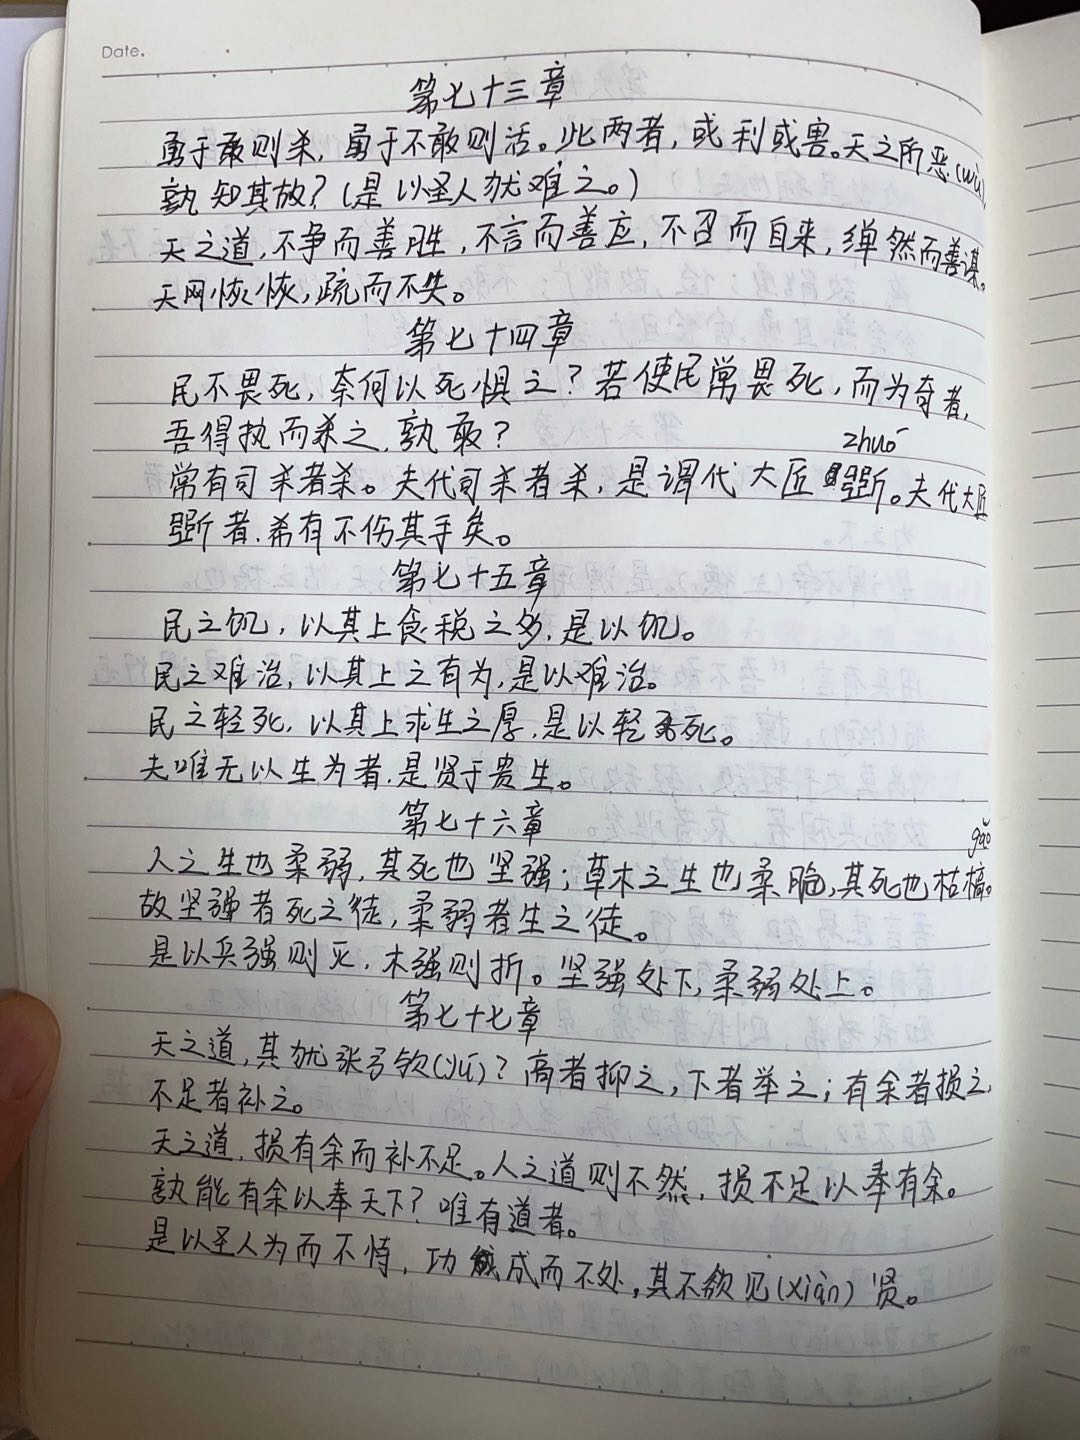 Date.
第七十三章
勇于敢则杀，勇于不敢则活。此两者，或利或害。天之所恶(wù)，
孰知其故？(是以圣人犹难之。)
天之道，不争而善胜，不言而善应，不召而自来，繟然而善谋。
天网恢恢，疏而不失。
第七十四章
民不畏死，奈何以死惧之？若使民常畏死，而为奇者，
吾得执而杀之，孰敢？
zhuó
常有司杀者杀。夫代司杀者杀，是谓代大匠斲。夫代大匠
斲者，希有不伤其手矣。
第七十五章
民之饥，以其上食税之多，是以饥。
民之难治，以其上之有为，是以难治。
民之轻死，以其上求生之厚，是以轻死。
夫唯无以生为者，是贤于贵生。
第七十六章
gǎo
人之生也柔弱，其死也坚强；草木之生也柔脆，其死也枯槁。
故坚强者死之徒，柔弱者生之徒。
是以兵强则灭，木强则折。坚强处下，柔弱处上。
第七十七章
天之道，其犹张弓欤(yú)？高者抑之，下者举之；有余者损之，
不足者补之。
天之道，损有余而补不足。人之道则不然，损不足以奉有余。
孰能有余以奉天下？唯有道者。
是以圣人为而不恃，功成而不处，其不欲见(xiàn)贤。